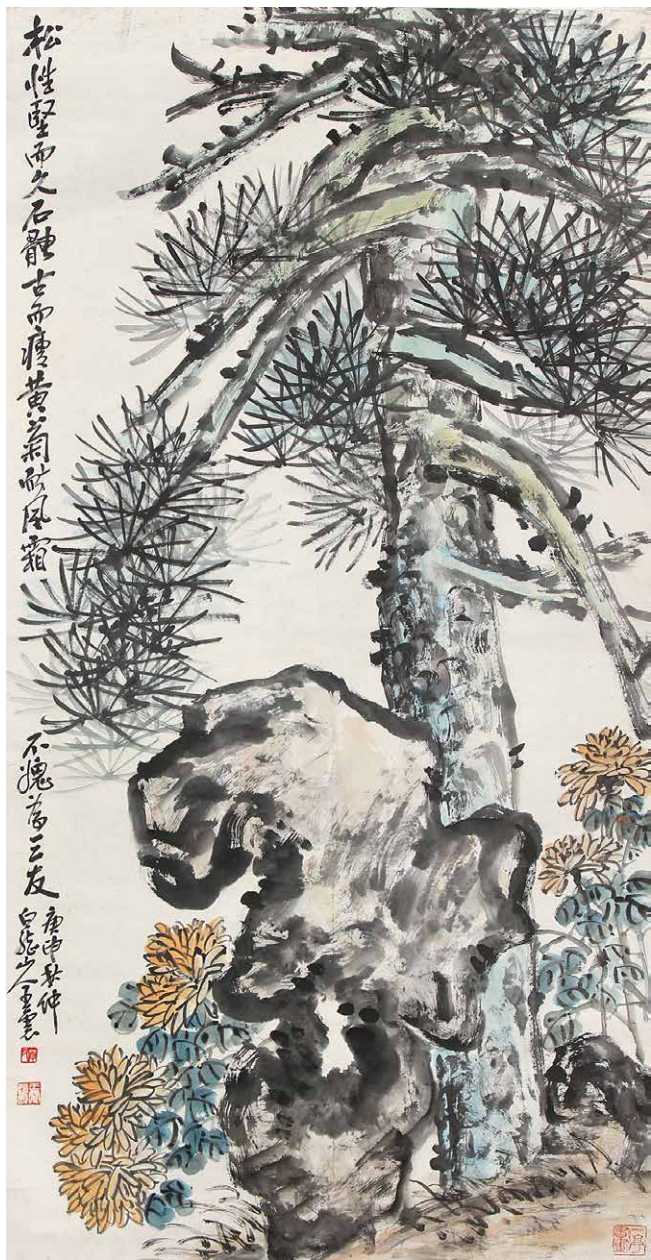 松性堅而久石體古而瘦黃菊耐風霜
不愧為三友
庚申秋仲
白龍山人王震